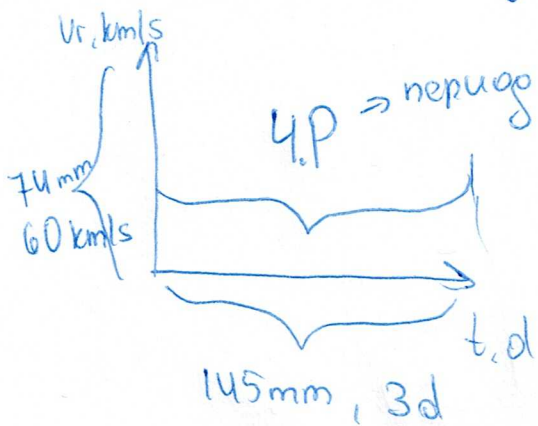 Vr, km/s
4.P → период
74mm
60 km/s
t, d
145mm, 3d